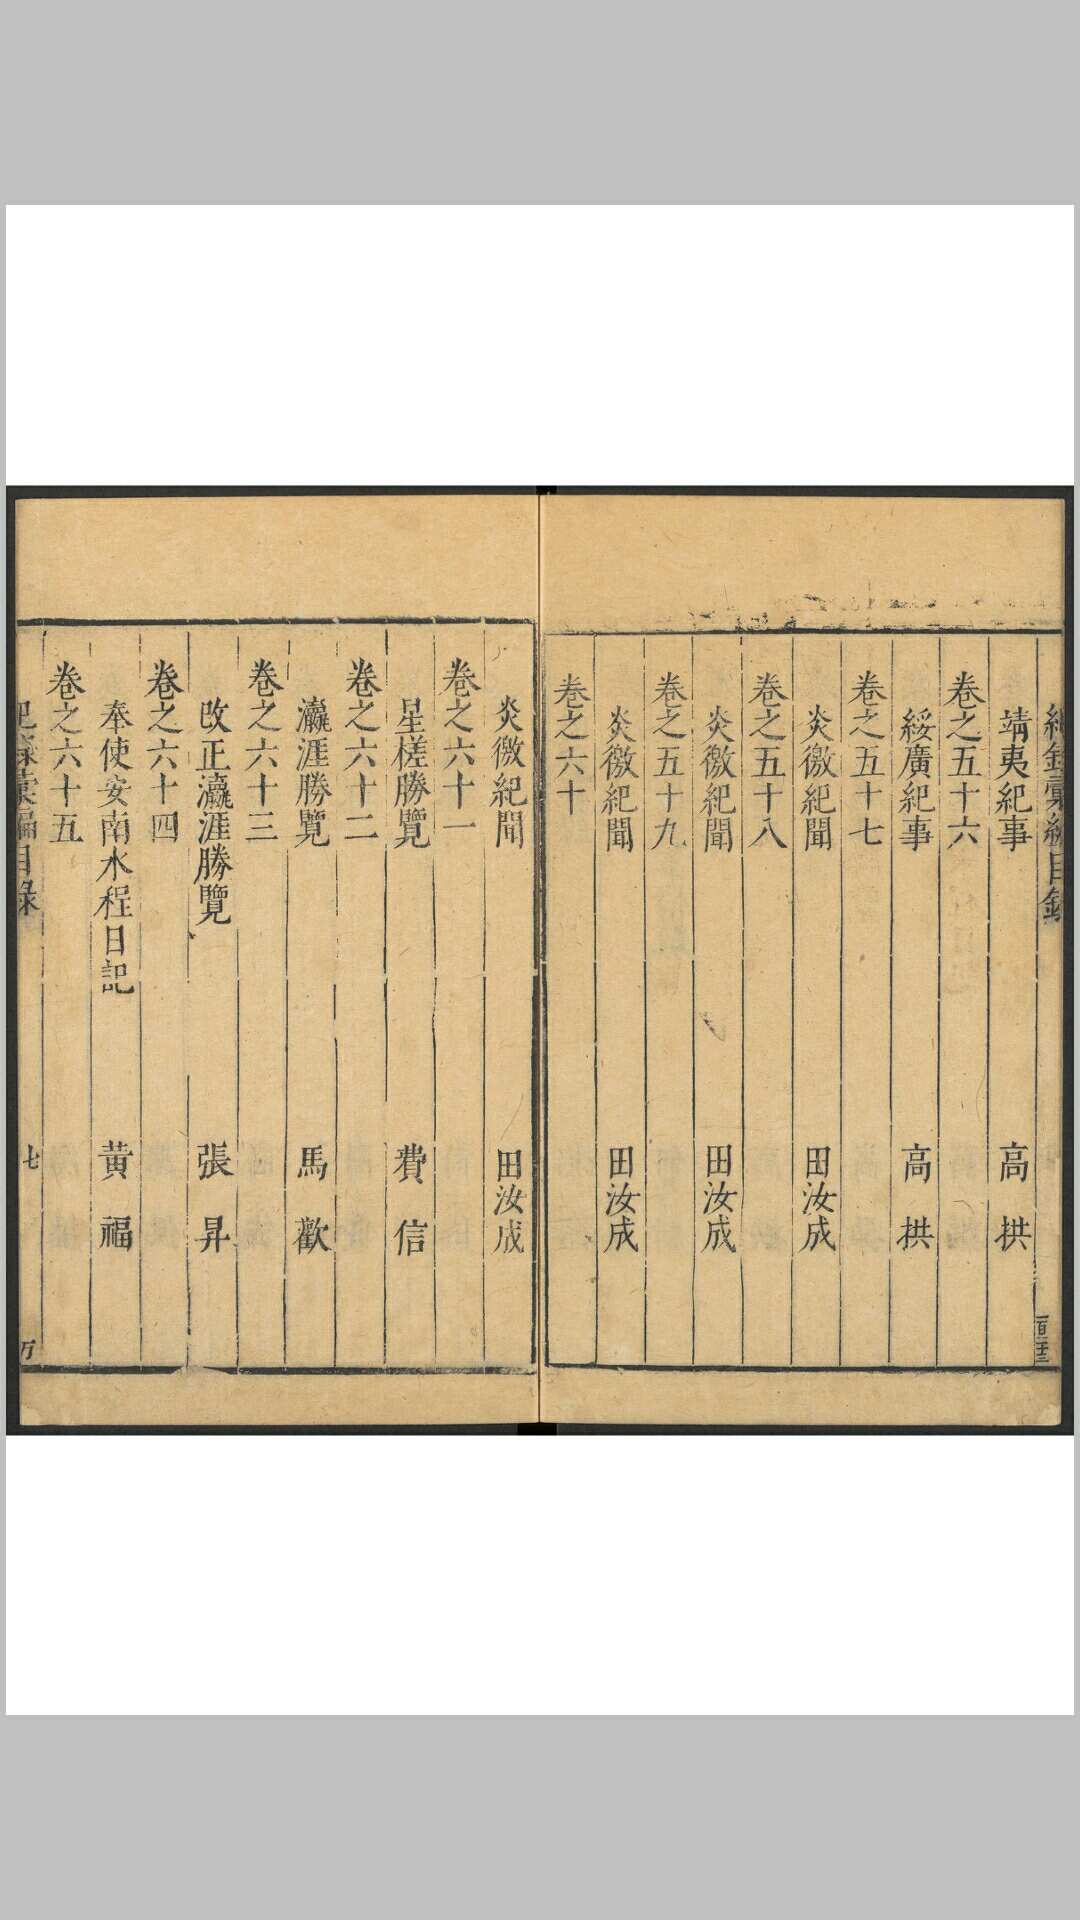 紀錄彙編目錄
靖夷紀事 高拱
卷之五十六
綏廣紀事 高拱
卷之五十七
炎徼紀聞 田汝成
卷之五十八
炎徼紀聞 田汝成
卷之五十九
炎徼紀聞 田汝成
卷之六十
炎徼紀聞 田汝成
卷之六十一
星槎勝覽 費信
卷之六十二
瀛涯勝覽 馬歡
卷之六十三
改正瀛涯勝覽 張昇
卷之六十四
奉使安南水程日記 黃福
卷之六十五
紀錄彙編目錄 七